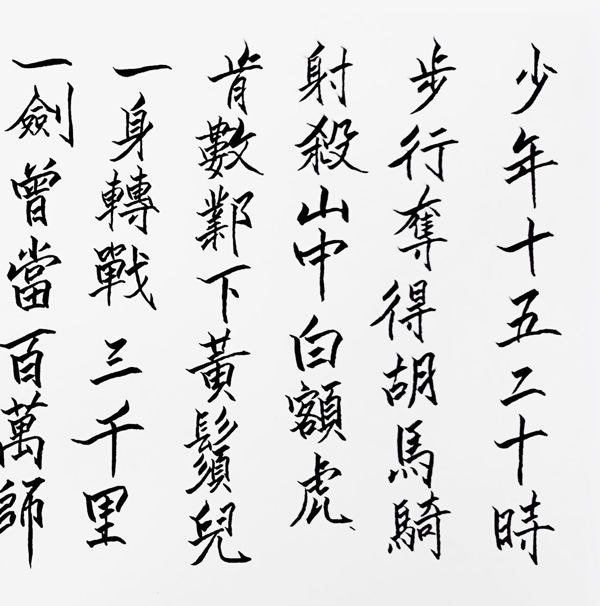 少年十五二十時
步行奪得胡馬騎
射殺山中白額虎
肯數鄴下黃鬚兒
一身轉戰三千里
一劍曾當百萬師